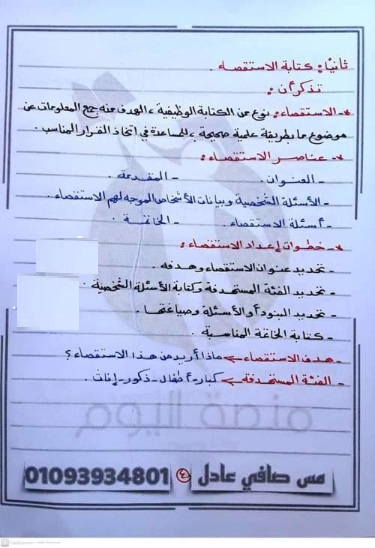 ثانيًا: كتابة الاستقصاء.
تذكر أن:
* الاستقصاء: نوع من الكتابة الوظيفية، الهدف منه جمع المعلومات عن
موضوع ما بطريقة علمية صحيحة، للمساعدة في اتخاذ القرار المناسب.
* عناصر الاستقصاء:
- العنوان. - المقدمة.
- الأسئلة الشخصية وبيانات الأشخاص الموجه لهم الاستقصاء.
- أسئلة الاستقصاء. - الخاتمة.
* خطوات إعداد الاستقصاء:
- تحديد عنوان الاستقصاء وهدفه.
- تحديد الفئة المستهدفة وكتابة الأسئلة الشخصية.
- تحديد البنود أو الأسئلة وصياغتها.
- كتابة الخاتمة المناسبة.
- هدف الاستقصاء ← ماذا أريد من هذا الاستقصاء؟
- الفئة المستهدفة ← كبار - أطفال - ذكور - إناث.
منصة اليوم
مس صافي عادل 01093934801